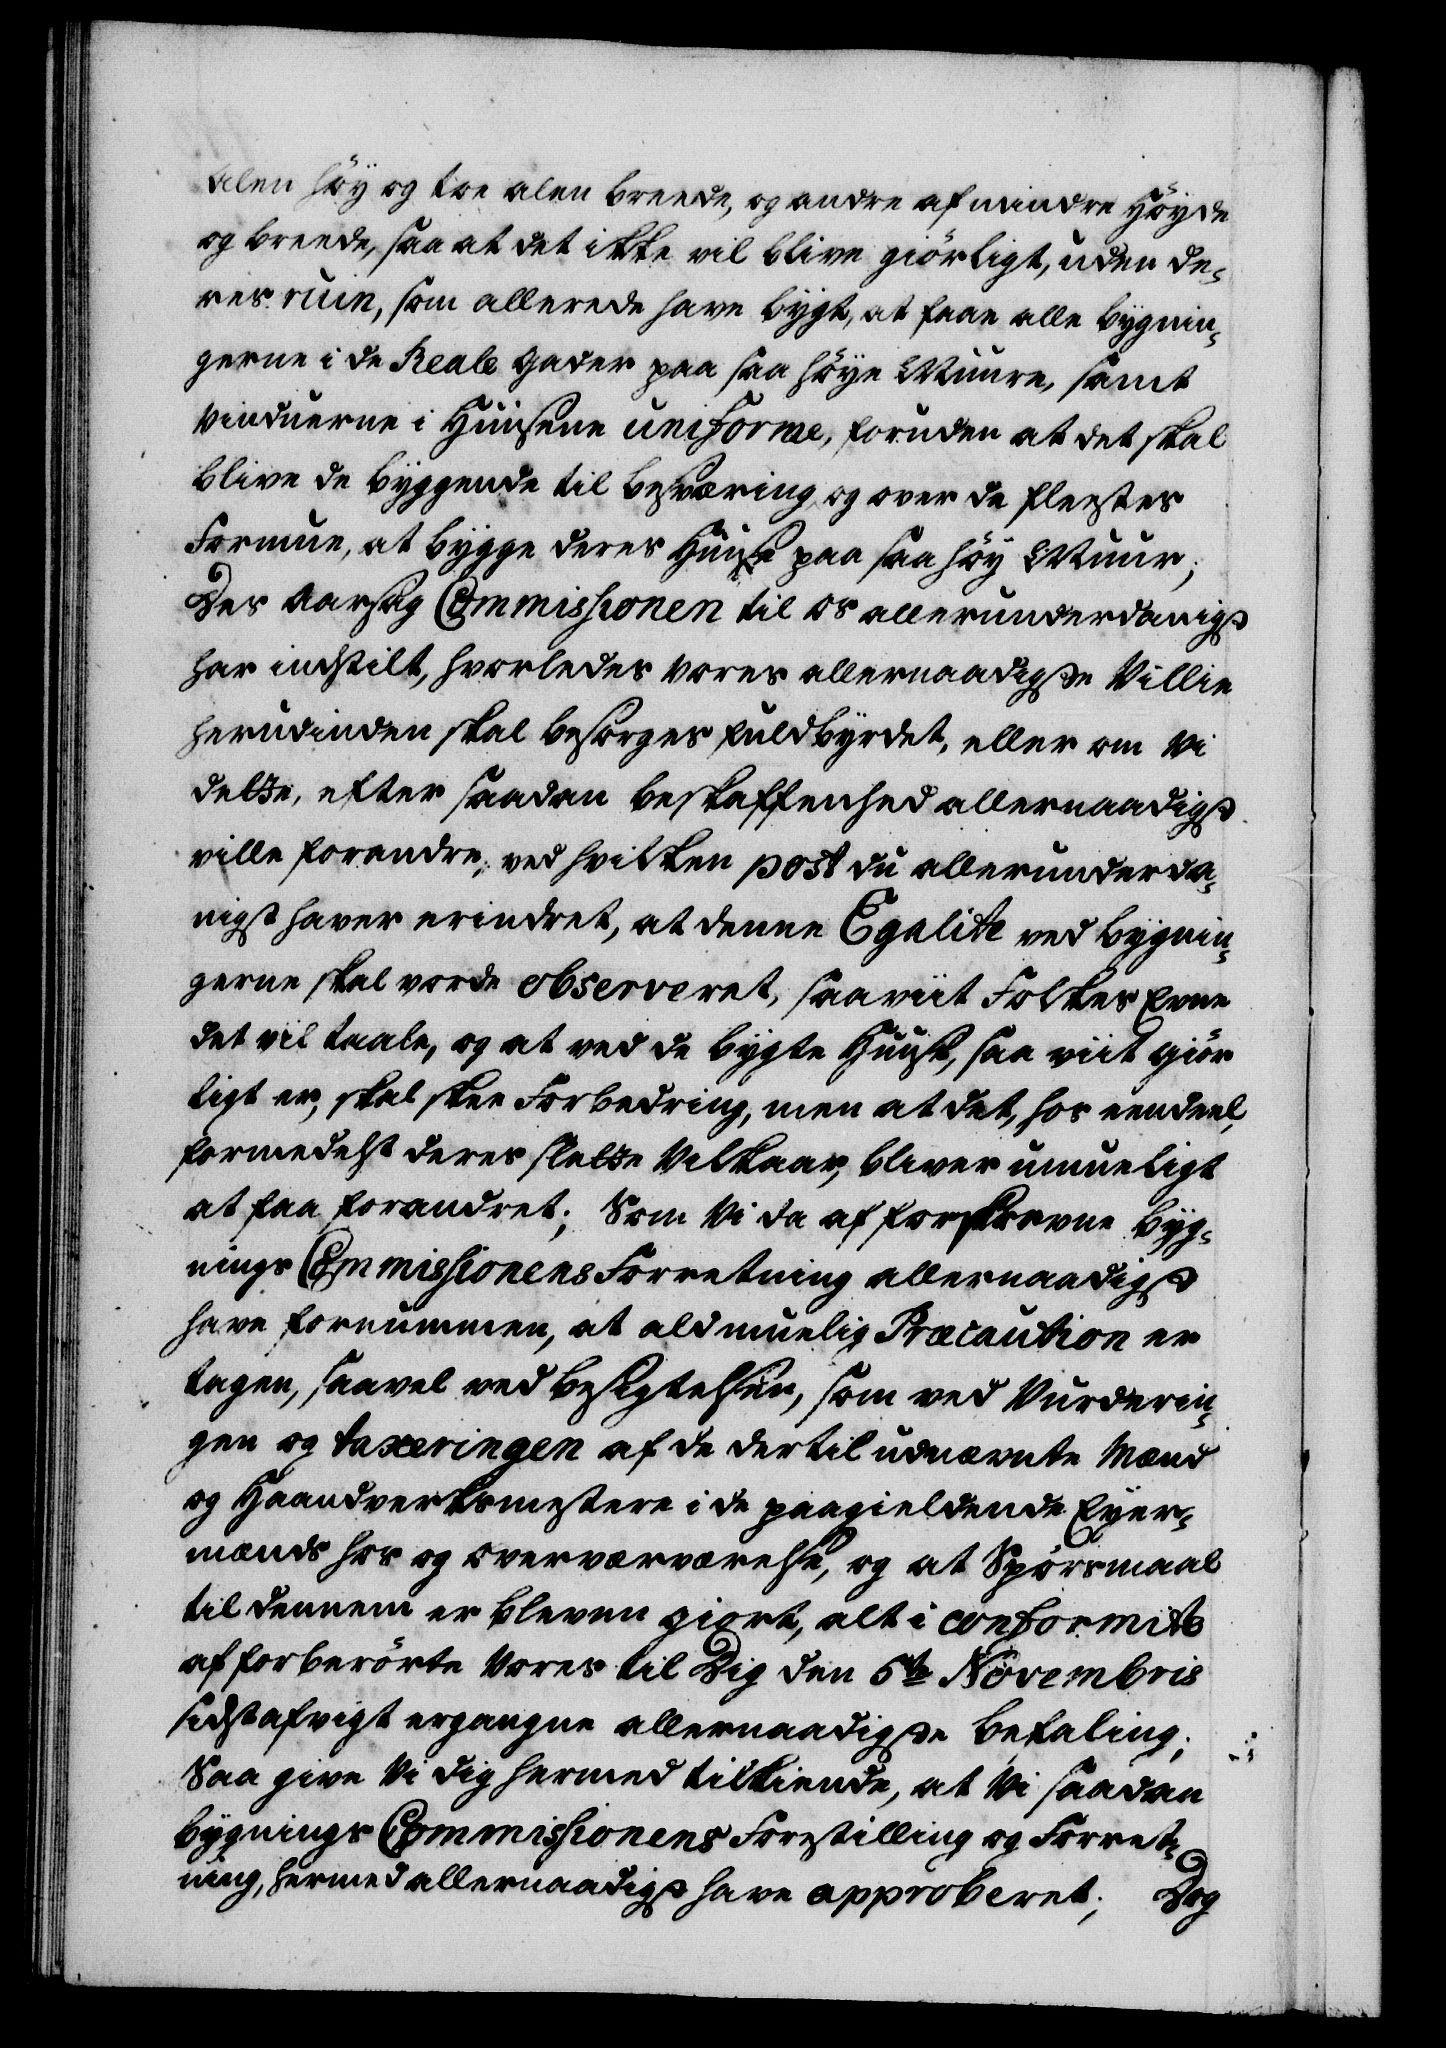 Alen höy og tre alen breede, og andre af mindre Höyde
og breede, saa at det ikke vil blive giörligt, uden de¬
res ruin, som allerede have bygt, at faae alle bygnin¬
gerne i de Reale Gader paa saa höye Muure, samt
vinduerne i Huusene uniforme, foruden at det skal
blive de byggende til besværing og over de fleestes
Formue, at bygge deres Huuse paa saa höy Muur;
Des Aarsag Commissionen til os allerunderdanigst
har indstilt, hvorledes vores allernaadigste Villie
herudinden skal besörges fuldbyrdet, eller om Vi
dette, efter saadan beskaffenhed allernaadigst
ville forandre, ved hvilken post du allerunderda¬
nigst haver erindret, at denne Egalite ved bygnin¬
gerne skal vorde observeret, saaviit Folkes Evne
det vil taale, og at ved de bygte Huuse, saa viit giör
ligt er, skal skee Forbedring, men at det, hos eendeel,
formedelst deres slette Vilkaar, bliver umueligt
at faa forandret; Som Vi da af forskrevne byg¬
nings Commissionens Forretning allernaadigst
have fornummen, at ald muelig Præcaution er
tagen, saavel ved besigtelsen, som ved Vurderin¬
gen og taxeringen af de dertil udnævnte Mænd
og Haandverksmestere i de paagieldende Eyer¬
mænds hos og overværværelse, og at Spörsmaal
til dennem er bleven giort, alt i conformite
af forberörte Vores til Dig den 5te Novembris
sidstafvigt ergangne allernaadigste befaling;
Saa give Vi dig hermed tilkiende, at Vi saadan
bygnings Commissionens Forestilling og Forret¬
ning, hermed allernaadigst have approberet; Dog